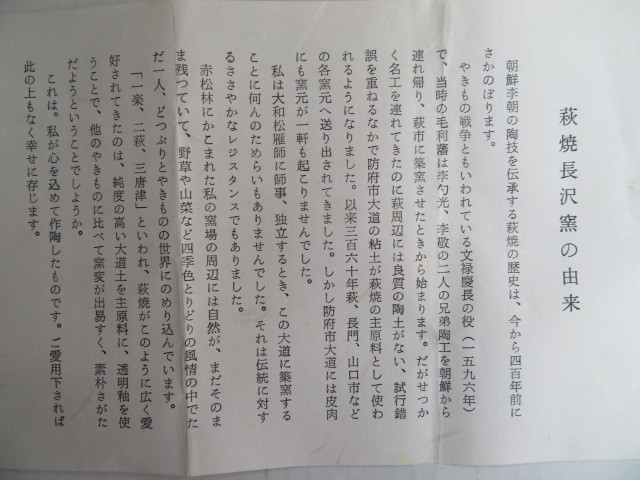 萩焼長沢窯の由来
朝鮮李朝の陶技を伝承する萩焼の歴史は、今から四百年前に
さかのぼります。
やきもの戦争ともいわれている文禄慶長の役（一五九六年）
で、当時の毛利藩は李勺光、李敬の二人の兄弟陶工を朝鮮から
連れ帰り、萩市に築窯させたときから始まります。だがせっか
く名工を連れてきたのに萩周辺には良質の陶土がない、試行錯
誤を重ねるなかで防府市大道の粘土が萩焼の主原料として使わ
れるようになりました。以来三百六十年萩、長門、山口市など
の各窯元へ送り出されてきました。しかし防府市大道には皮肉
にも窯元が一軒も起こりませんでした。
私は大和松雁師に師事、独立するとき、この大道に築窯する
ことに何んのためらいもありませんでした。それは伝統に対す
るささやかなレジスタンスでもありました。
赤松林にかこまれた私の窯場の周辺には自然が、まだそのま
ま残つていて、野草や山菜など四季色とりどりの風情の中でた
だ一人、どつぷりとやきものの世界にのめり込んでいます。
「一楽、二萩、三唐津」といわれ、萩焼がこのように広く愛
好されてきたのは、純度の高い大道土を主原料に、透明釉を使
うことで、他のやきものに比べて窯変が出易すく、素朴さがた
だようということでしようか。
これは。私が心を込めて作陶したものです。ご愛用下されば
此の上もなく幸せに存じます。